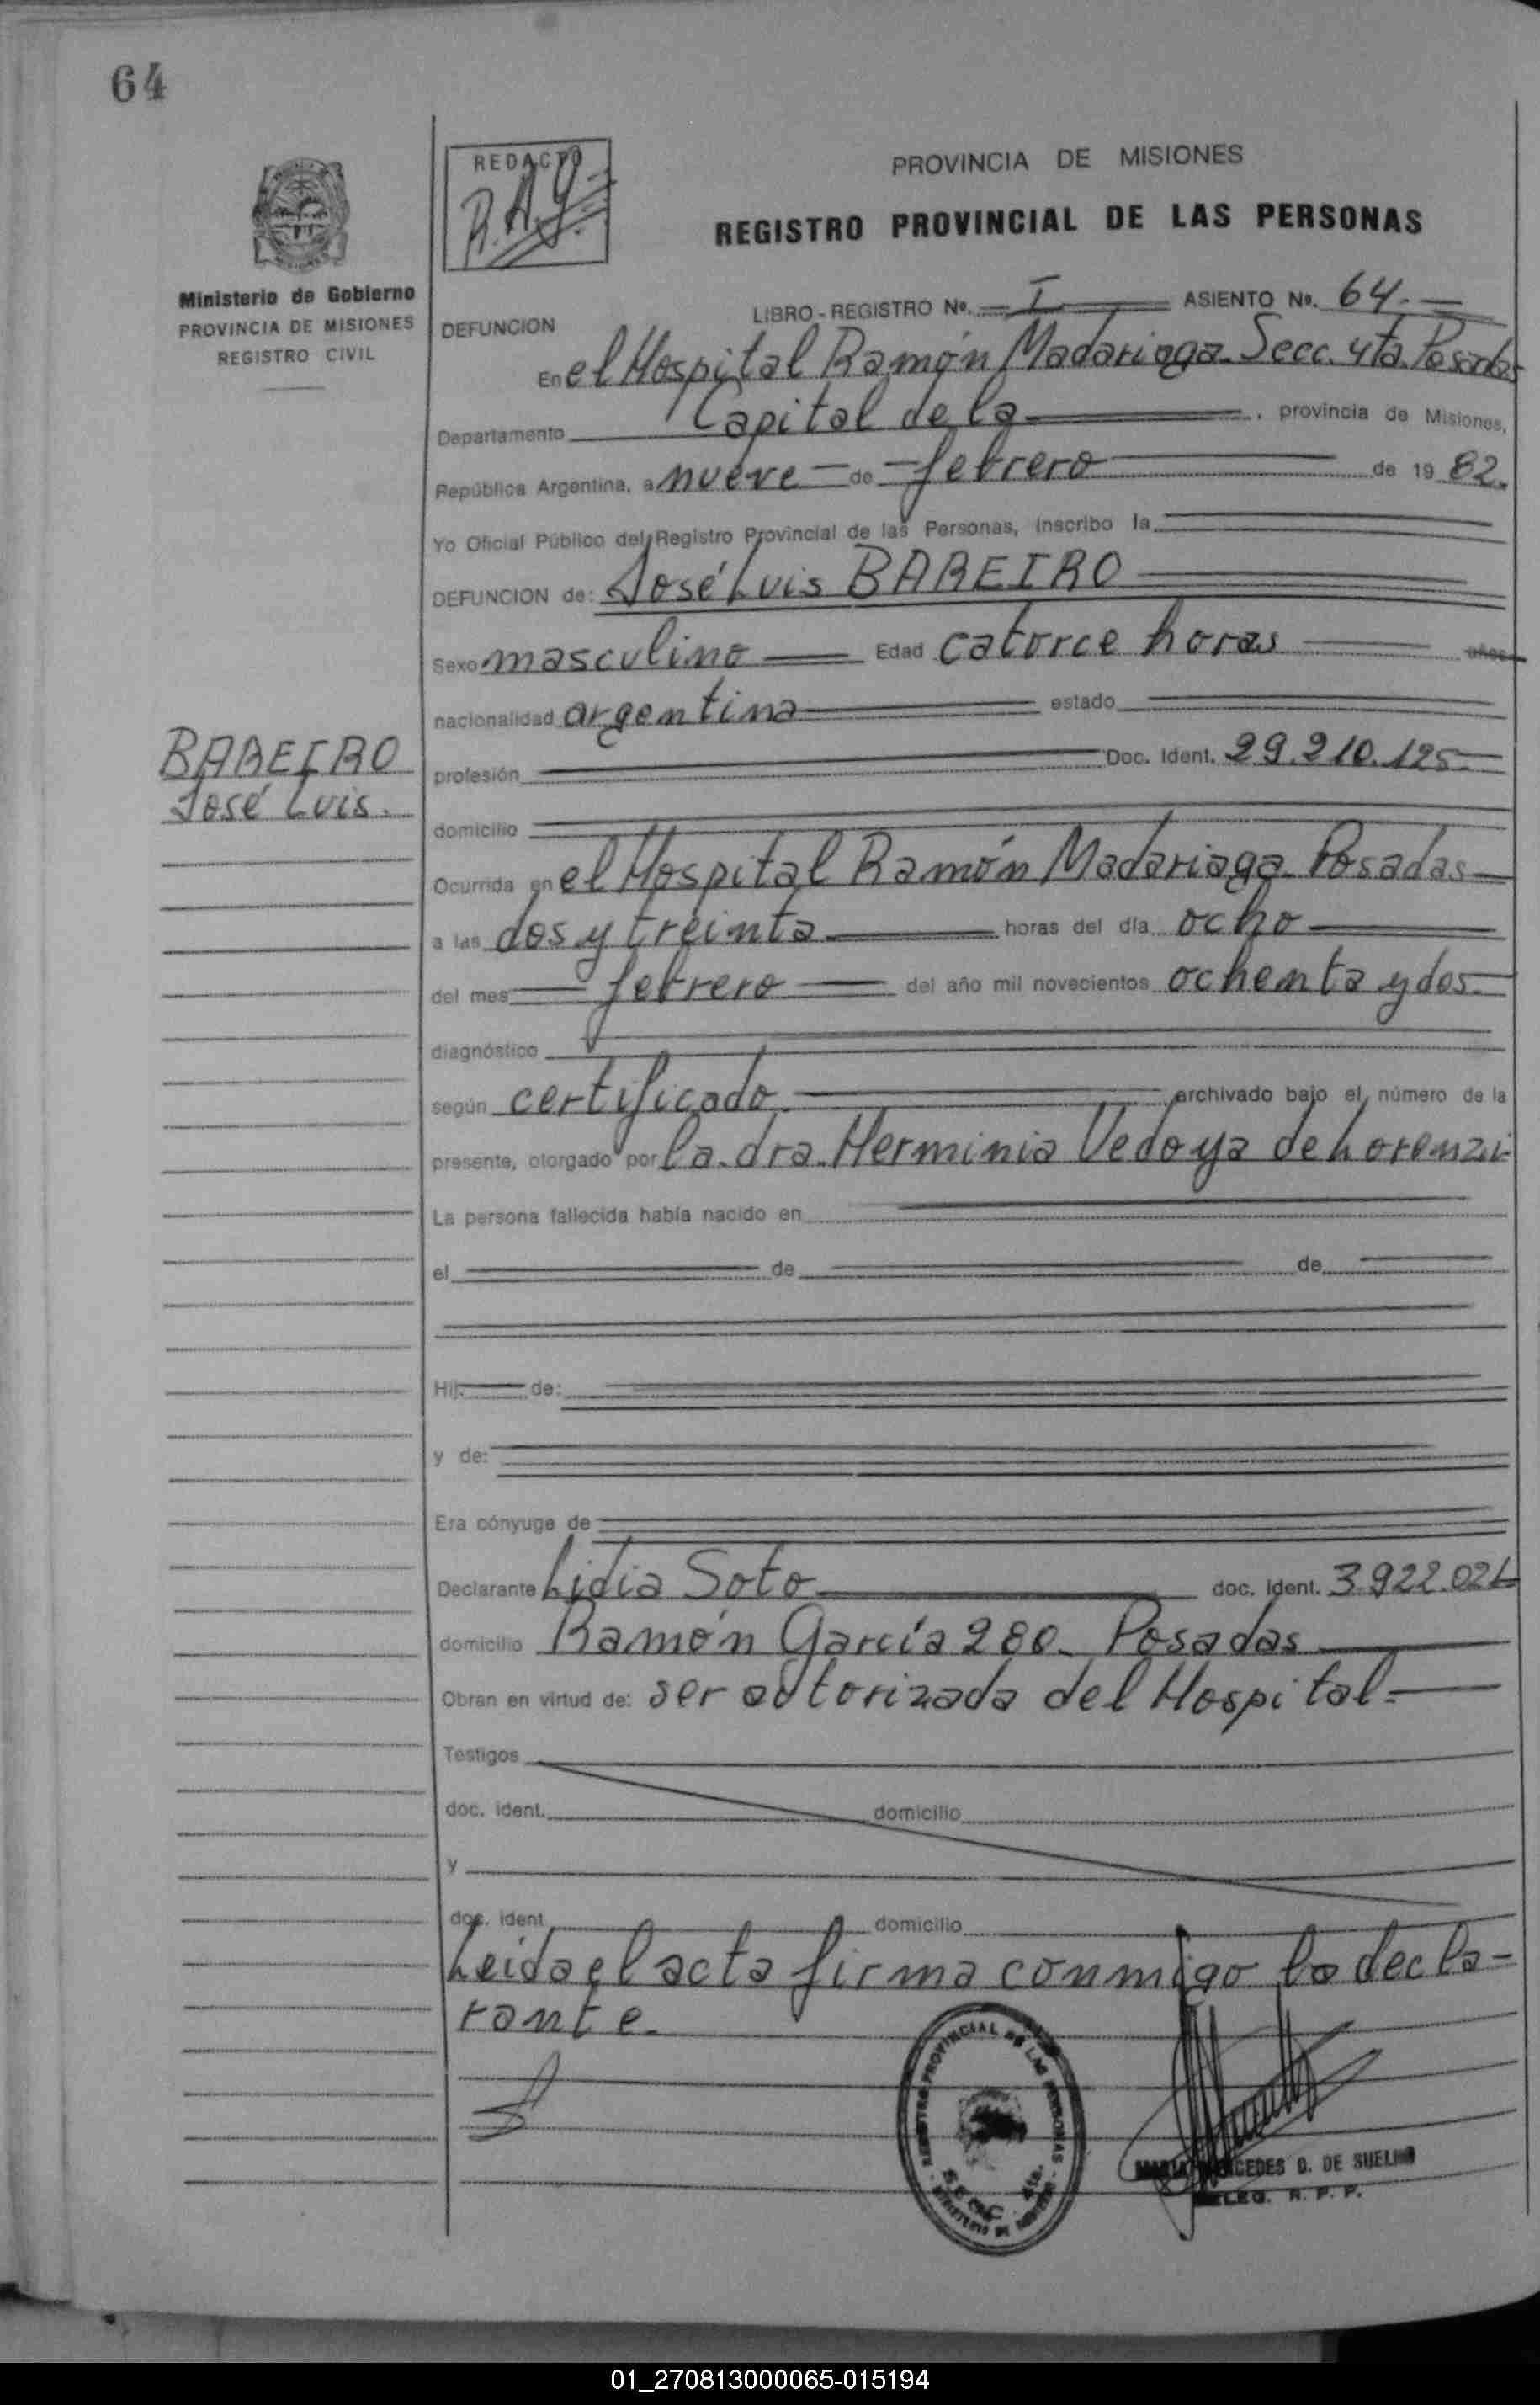 64
REDACTO
R.A.G.
PROVINCIA DE MISIONES
REGISTRO PROVINCIAL DE LAS PERSONAS
Ministerio de Gobierno
PROVINCIA DE MISIONES
REGISTRO CIVIL
LIBRO - REGISTRO No. I ASIENTO No. 64.
DEFUNCION
En el Hospital Ramón Madariaga. Secc. 4ta. Posadas
Departamento Capital de la , provincia de Misiones,
República Argentina, a nueve de febrero de 19 82.
Yo Oficial Público del Registro Provincial de las Personas, inscribo la
DEFUNCION de: José Luis BAREIRO
Sexo masculino Edad catorce horas años
nacionalidad argentina estado
BAREIRO
José Luis.
profesión Doc. Ident. 29.210.125.
domicilio
Ocurrida en el Hospital Ramón Madariaga. Posadas
a las dos y treinta horas del día ocho
del mes febrero del año mil novecientos ochenta y dos.
diagnóstico
según certificado archivado bajo el número de la
presente, otorgado por la dra. Herminia Vedoya de Lorenzi
La persona fallecida había nacido en
el de de
Hij de:
y de:
Era cónyuge de
Declarante Lidia Soto doc. ident. 3.922.02
domicilio Ramón García 280. Posadas
Obran en virtud de: ser autorizada del Hospital.
Testigos
doc. ident. domicilio
y
doc. ident. domicilio
Leida el acta firma conmigo la decla-
rante.
REGISTRO PROVINCIAL DE LAS PERSONAS
SECC. 4ta.
MARIA MERCEDES G. DE SUELDO
DELEG. R. P. P.
01_270813000065-015194